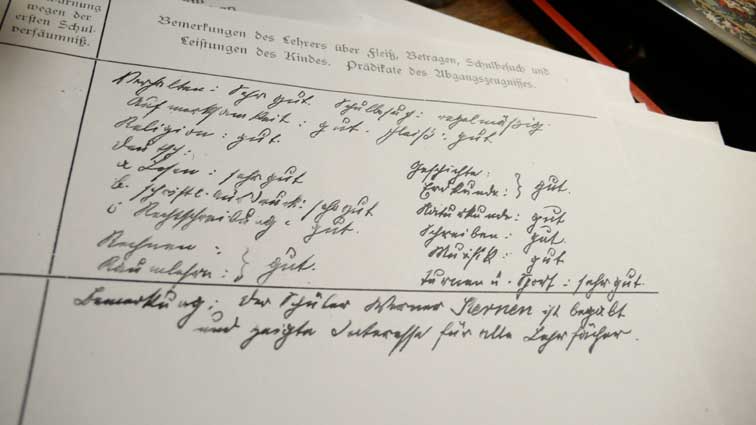 wegen der
ersten Schul-
versäumniß.
Bemerkungen des Lehrers über Fleiß, Betragen, Schulbesuch und
Leistungen des Kindes. Prädikate des Abgangszeugnisses.
Verhalten: Sehr gut. Schulbesuch: regelmässig.
Aufmerksamkeit: gut. Fleiß: gut
Religion: gut.
Deutsch:
a Lesen: sehr gut
b. schriftl. Ausdruck: sehr gut
c Rechtschreibung: gut.
Rechnen:
Raumlehre: } gut.
Geschichte:
Erdkunde: } gut.
Naturkunde: gut
Schreiben: gut
Musik: gut
Turnen u. Sport: sehr gut.
Bemerkung: Der Schüler Werner Kernen ist begabt
und zeigte Interesse für alle Lehrfächer.